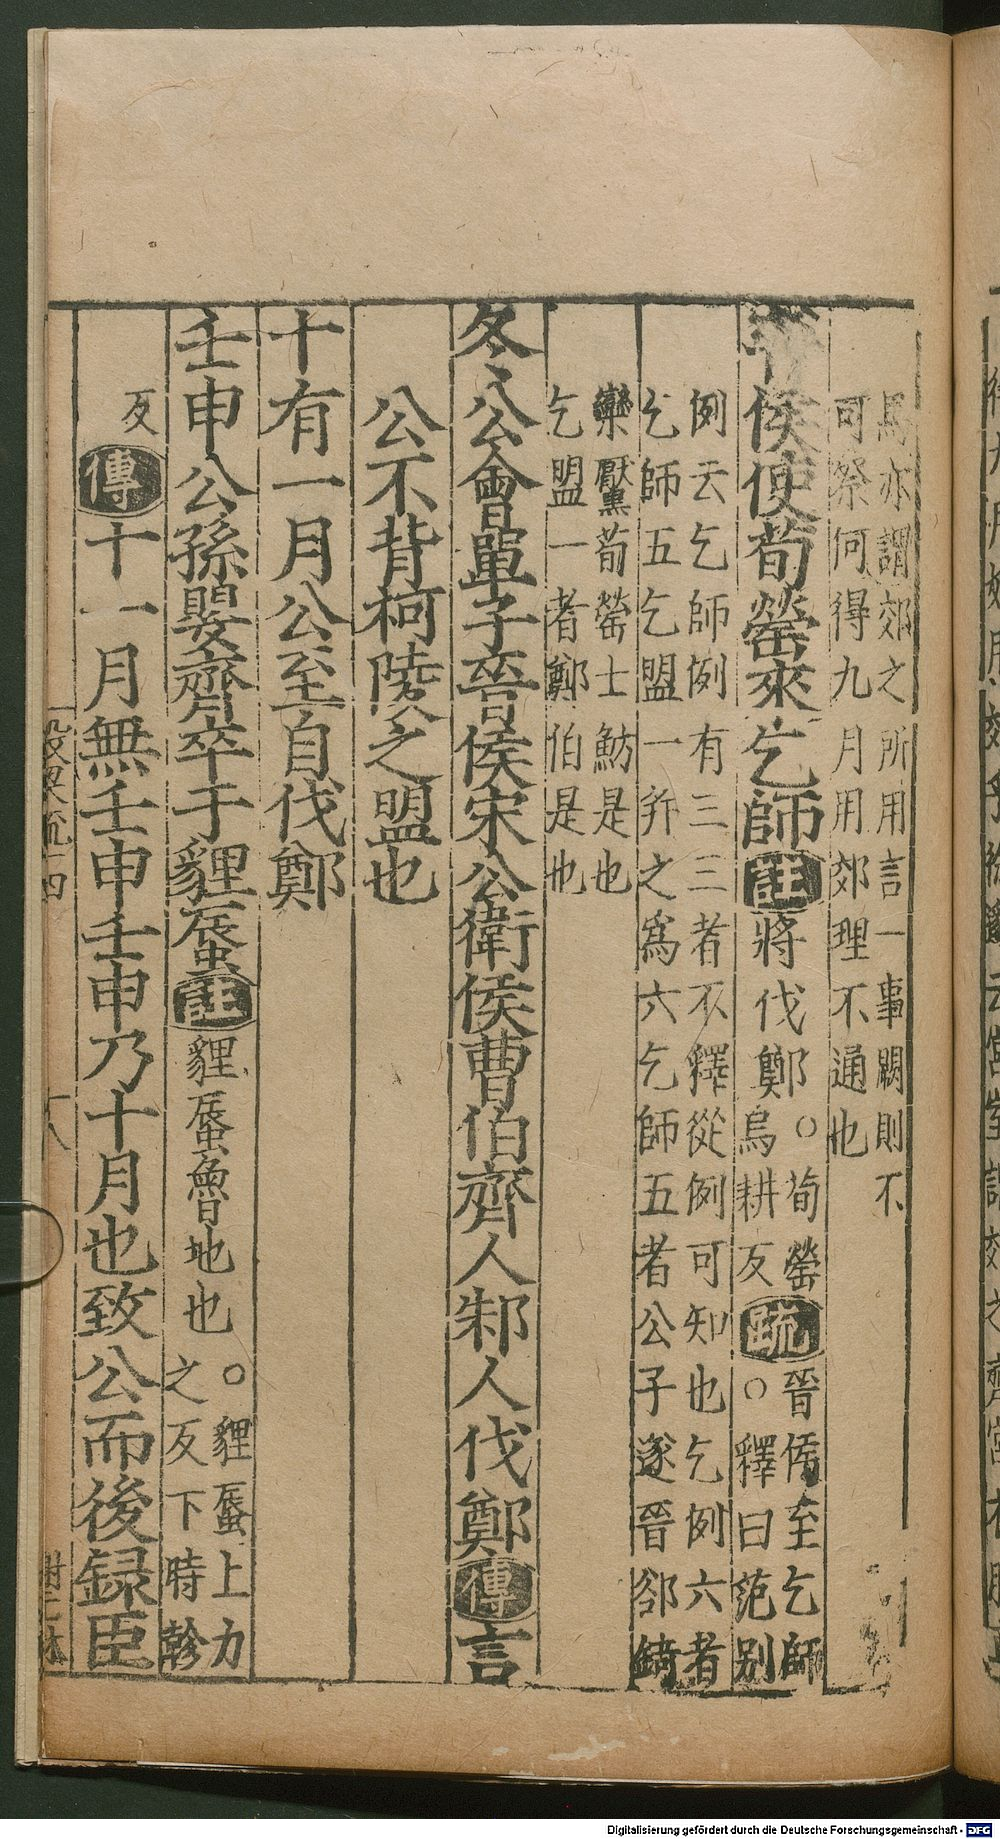 馬亦謂郊之所用言一事闕則不
可祭何得九月用郊理不通也
晉侯使荀罃來乞師註將伐鄭○荀罃
烏耕反疏晉侯至乞師
○釋曰范别
例云乞師例有三三者不釋從例可知也乞例六者
乞師五乞盟一并之爲六乞師五者公子遂晉郤錡
欒黶荀罃士魴是也
乞盟一者鄭伯是也
冬公會單子晉侯宋公衛侯曹伯齊人邾人伐鄭傳言
公不背柯陵之盟也
十有一月公至自伐鄭
壬申公孫嬰齊卒于貍蜃註貍蜃魯地也○貍蜃上力
之反下時軫
反傳十一月無壬申壬申乃十月也致公而後録臣
穀梁疏十四
十八
Digitalisierung gefördert durch die Deutsche Forschungsgemeinschaft - DFG